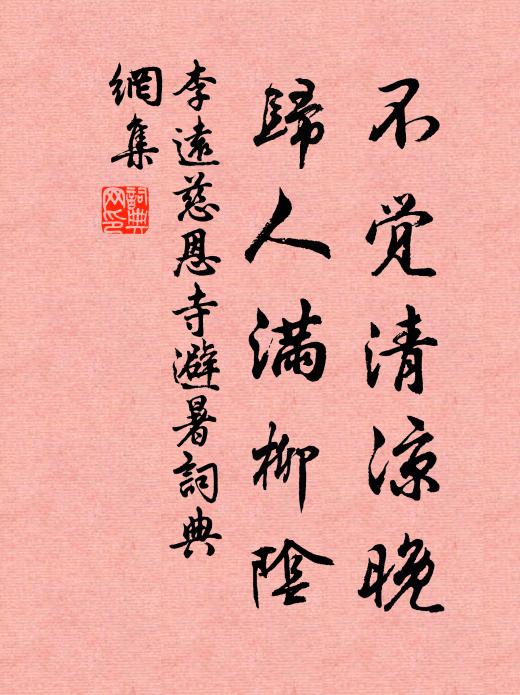 不觉清凉晚
歸人滿柳陰
李遠慈恩寺避暑詞典
網集
詞典
网印